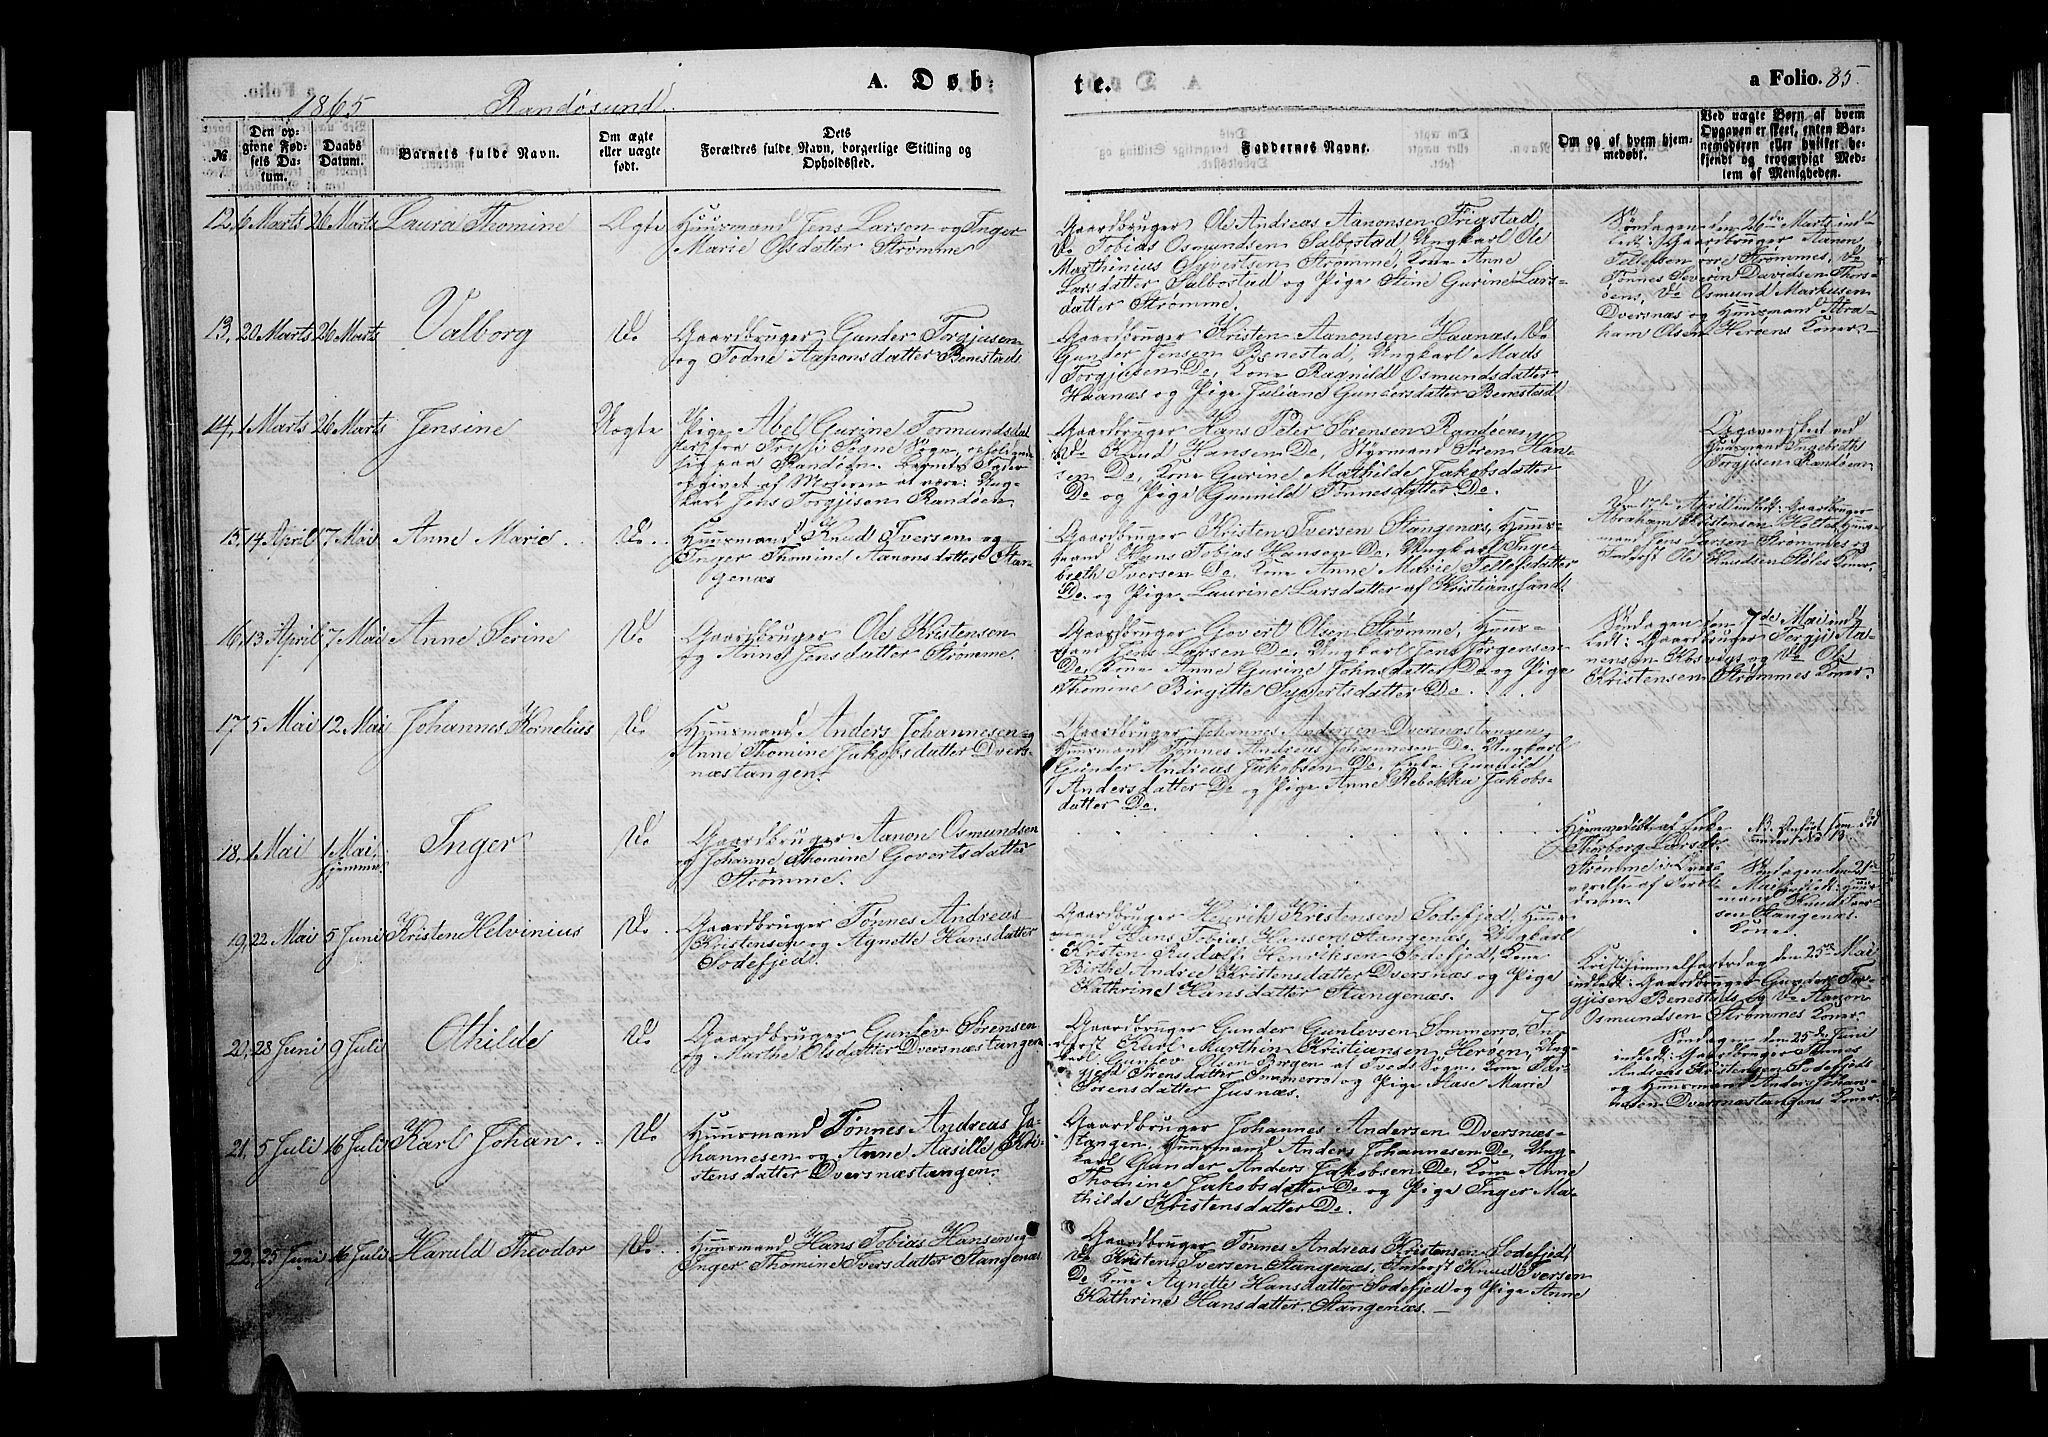 a Folio.
A. Døb-
te.
a Folio. 85
1865
Randøsund.
№
Den op-
givne Fød-
sels Da-
tum.
Daabs
Datum.
Barnets fulde Navn.
Om ægte
eller uægte
født.
Dets
Forældres fulde Navn, borgerlige Stilling og
Opholdssted.
Faddernes Navne.
Om og af hvem hjem-
medøbt.
Ved uægte Børn af hvem
Opgaven er skeet, enten Bar-
nemoderen eller hvilket be-
kjendt og troværdigt Med-
lem af Menigheden.
12, 6 Marts 26 Marts Laura Thomine Ægte
Huusmand Jens Larsen og Inger
Marie Olsdatter Strømme
Gaardbruger Ole Andreas Aanonsen Frigstad,
Do Tobias Osmundsen Salbostad, Ungkarl Ole
Marthinius Syvertsen Strømme, Kone Anne
Larsdatter Salbostad og Pige Stine Gurine Lars-
datter Strømme.
Søndagen den 26de Marts ind-
ledt: Gaardbruger Aanon
Tellefsen Strømmes, Do
Tønnes Severin Davidsen
Do Osmund Markusen
Dversnæs og Huusmand Abra-
ham Olsen Herøens Koner.
13, 20 Marts 26 Marts Valborg Do
Gaardbruger Gunder Torgjusen
og Todne Aanonsdatter Benestad
Gaardbruger Kristen Aanonsen Haanæs, Do
Gunder Jensen Benestad, Ungkarl Mads
Torgjusen Do, Kone Ragnild Osmundsdatter
Haanæs og Pige Juliane Gundersdatter Benestad
14, 1 Marts 26 Marts Jensine Uægte
Pige Abel Gurine Tormundsdat-
ter fra Sogn, opholdende
sig paa Randøen. Barnets Fader
opgivet af Moderen at være: Ung-
karl Jens Torgjusen Randøen.
Gaardbruger Hans Peter Sørensen Randøen,
Do Knud Hansen Do, Styrmand Søren Han-
sen Do, Kone Gurine Mathilde Jakobsdatter
Do og Pige Gunnild Tønnesdatter Do.
Opgaven skeet ved
Huusmand Ingebreth
Torgjusen Randøen
15, 14 April 7 Mai Anne Marie Do
Huusmand Knud Iversen og
Inger Thomine Aanonsdatter Stan-
genæs
Gaardbruger Kristen Iversen Stangenæs, Huus-
mand Hans Tobias Hansen Do, Ungkarl Inge-
breth Iversen Do, Kone Anne Marie Tellefsdatter
Do. og Pige Laurine Larsdatter af Kristianssand.
Den 17de April indledt: Gaardbruger
Abraham Kristensen Huus-
mand Jens Larsen Strømmes og
Inderst Ole Knudsen Koner.
16, 13 April 7 Mai Anne Serine Do
Gaardbruger Ole Kristensen
og Anne Jensdatter Strømme.
Gaardbruger Govert Olsen Strømme, Huus-
mand Jens Larsen Do, Ungkarl Jens Jørgensen
Do, Kone Anne Gurine Johnsdatter Do og Pige
Thomine Birgitte Syvertsdatter Do.
Søndagen den 7de Mai ind-
ledt: Gaardbruger Torgju Aa-
nensen Kosvigs og Do Ole
Kristensen Strømmes Koner.
17, 5 Mai 12 Mai Johannes Kornelius Do
Huusmand Anders Johannesen og
Anne Thomine Jakobsdatter Dvers-
næstangen.
Gaardbruger Johannes Andersen Dversnæstangen,
Huusmand Tønnes Andreas Johannesen Do, Ungkarl
Gunder Andreas Jakobsen Do, Enke Gunnild
Andersdatter Do og Pige Anne Rebekka Jakobs-
datter Do.
18, 1 Mai 1 Mai, hjemme Inger Do
Gaardbruger Aanon Osmundsen
og Johanne Thomine Govertsdatter
Strømme.
Hjemmedøbt af Enke
Thorborg Larsdtr
Strømme i Overvær
værelse af Foræl-
drene.
NB. Anført som død
under No 13
Søndagen den 21de
Mai indledt: Huus-
mand Knud Iver-
sen Stangenæs
Kone.
19, 22 Mai 5 Juni Kristen Helvinius Do
Gaardbruger Tønnes Andreas
Kristensen og Agnette Hansdatter
Sodefjed.
Gaardbruger Henrik Kristensen Sodefjed, Huus-
mand Hans Tobias Hansen Stangenæs, Ungkarl
Kristen Rudolf Henriksen Sodefjed, Kone
Birthe Andrea Kristensdatter Dversnæs og Pige
Kathrine Hansdatter Stangenæs.
Kristihimmelfartsdag den 25de Mai
indledt: Gaardbruger Gunder Tor-
gjusen Benestads og Do Aanon
Osmundsen Strømmes Koner.
20, 28 Juni 9 Juli Othilde Do
Gaardbruger Gunlev Sørensen
og Marthe Olsdatter Dversnæstangen
Gaardbruger Gunder Gunlevsen Sommerro, In-
derst Karl Marthin Kristiansen Herøen, Ung-
karl Gunlev Olsen Birgen af Tveds Sogn, Kone Tar-
gjerd Sørensdatter Sommerro og Pige Aase Marie
Sørensdatter
Søndagen den 25de Juni
indledt: Gaardbruger Tønnes
Andreas Kristensen Sodefjeds
og Huusmand Anders Johan-
nesen Dversnæstangens Koner.
21, 5 Juli 16 Juli Karl Johan Do
Huusmand Tønnes Andreas Jo-
hannesen og Anne Aasille Kri-
stensdatter Dversnæstangen.
Gaardbruger Johannes Andersen Dversnæs-
tangen, Huusmand Anders Johannesen Do, Ung-
karl Gunder Anders Jakobsen Do, Kone Anne
Thomine Jakobsdatter Do og Pige Inger Ma-
thilde Kristensdatter Do.
22, 25 Juni 16 Juli Harald Theodor Do
Huusmand Hans Tobias Hansen og
Inger Thomine Iversdatter Stangenæs.
Gaardbruger Tønnes Andreas Kristensen Sodefjed,
Do Kristen Iversen Stangenæs, Inderst Knud Iversen
Do, Kone Agnette Hansdatter Sodefjed og Pige Anne
Kathrine Hansdatter Stangenæs.